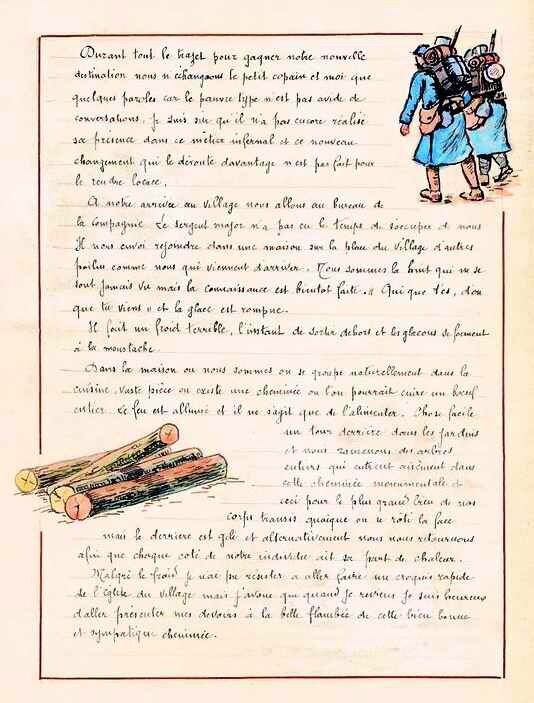 Durant tout le trajet pour gagner notre nouvelle
destination nous n'échangeons le petit copain et moi que
quelques paroles car le pauvre type n'est pas avide de
conversations. Je suis sur qu'il n'a pas encore réalisé
sa présence dans ce métier infernal et ce nouveau
changement qui le déroute davantage n'est pas fait pour
le rendre locace.
A notre arrivée au village nous allons au bureau de
la compagnie. Le sergent major n'a pas eu le temps de s'occuper de nous
Il nous envoi rejoindre dans une maison sur la place du village d'autres
poilus comme nous qui viennent d'arriver. Nous sommes la huit qui ne se
sont jamais vu mais la connaissance est bientot faite. " Qui que t'es, d'ou
que tu viens " et la glace est rompue.
Il fait un froid terrible, l'instant de sortir dehors et les glacons se forment
à la moustache.
Dans la maison ou nous sommes on se groupe naturellement dans la
cuisine, vaste pièce ou existe une cheminée ou l'on pourrait cuire un bœuf
entier. Le feu est allumée et il ne s'agit que de l'alimenter. Chose facile
un tour derriere dans les jardins
et nous ramenons des arbres
entiers qui entrent aisément dans
cette cheminée monumentale et
ceci pour le plus grand bien de nos
corps transis quoique on se rôti la face
mais le derriere est gelé et alternativement nous nous retournons
afin que chaque coté de notre individu ait sa part de chaleur.
Malgré le froid je n'ai pu résister a aller faire un croquis rapide
de l'Eglise du village mais j'avoue que quand je reviens je suis heureux
d'aller présenter mes devoirs à la belle flambée de cette bien bonne
et sympatique cheminée.